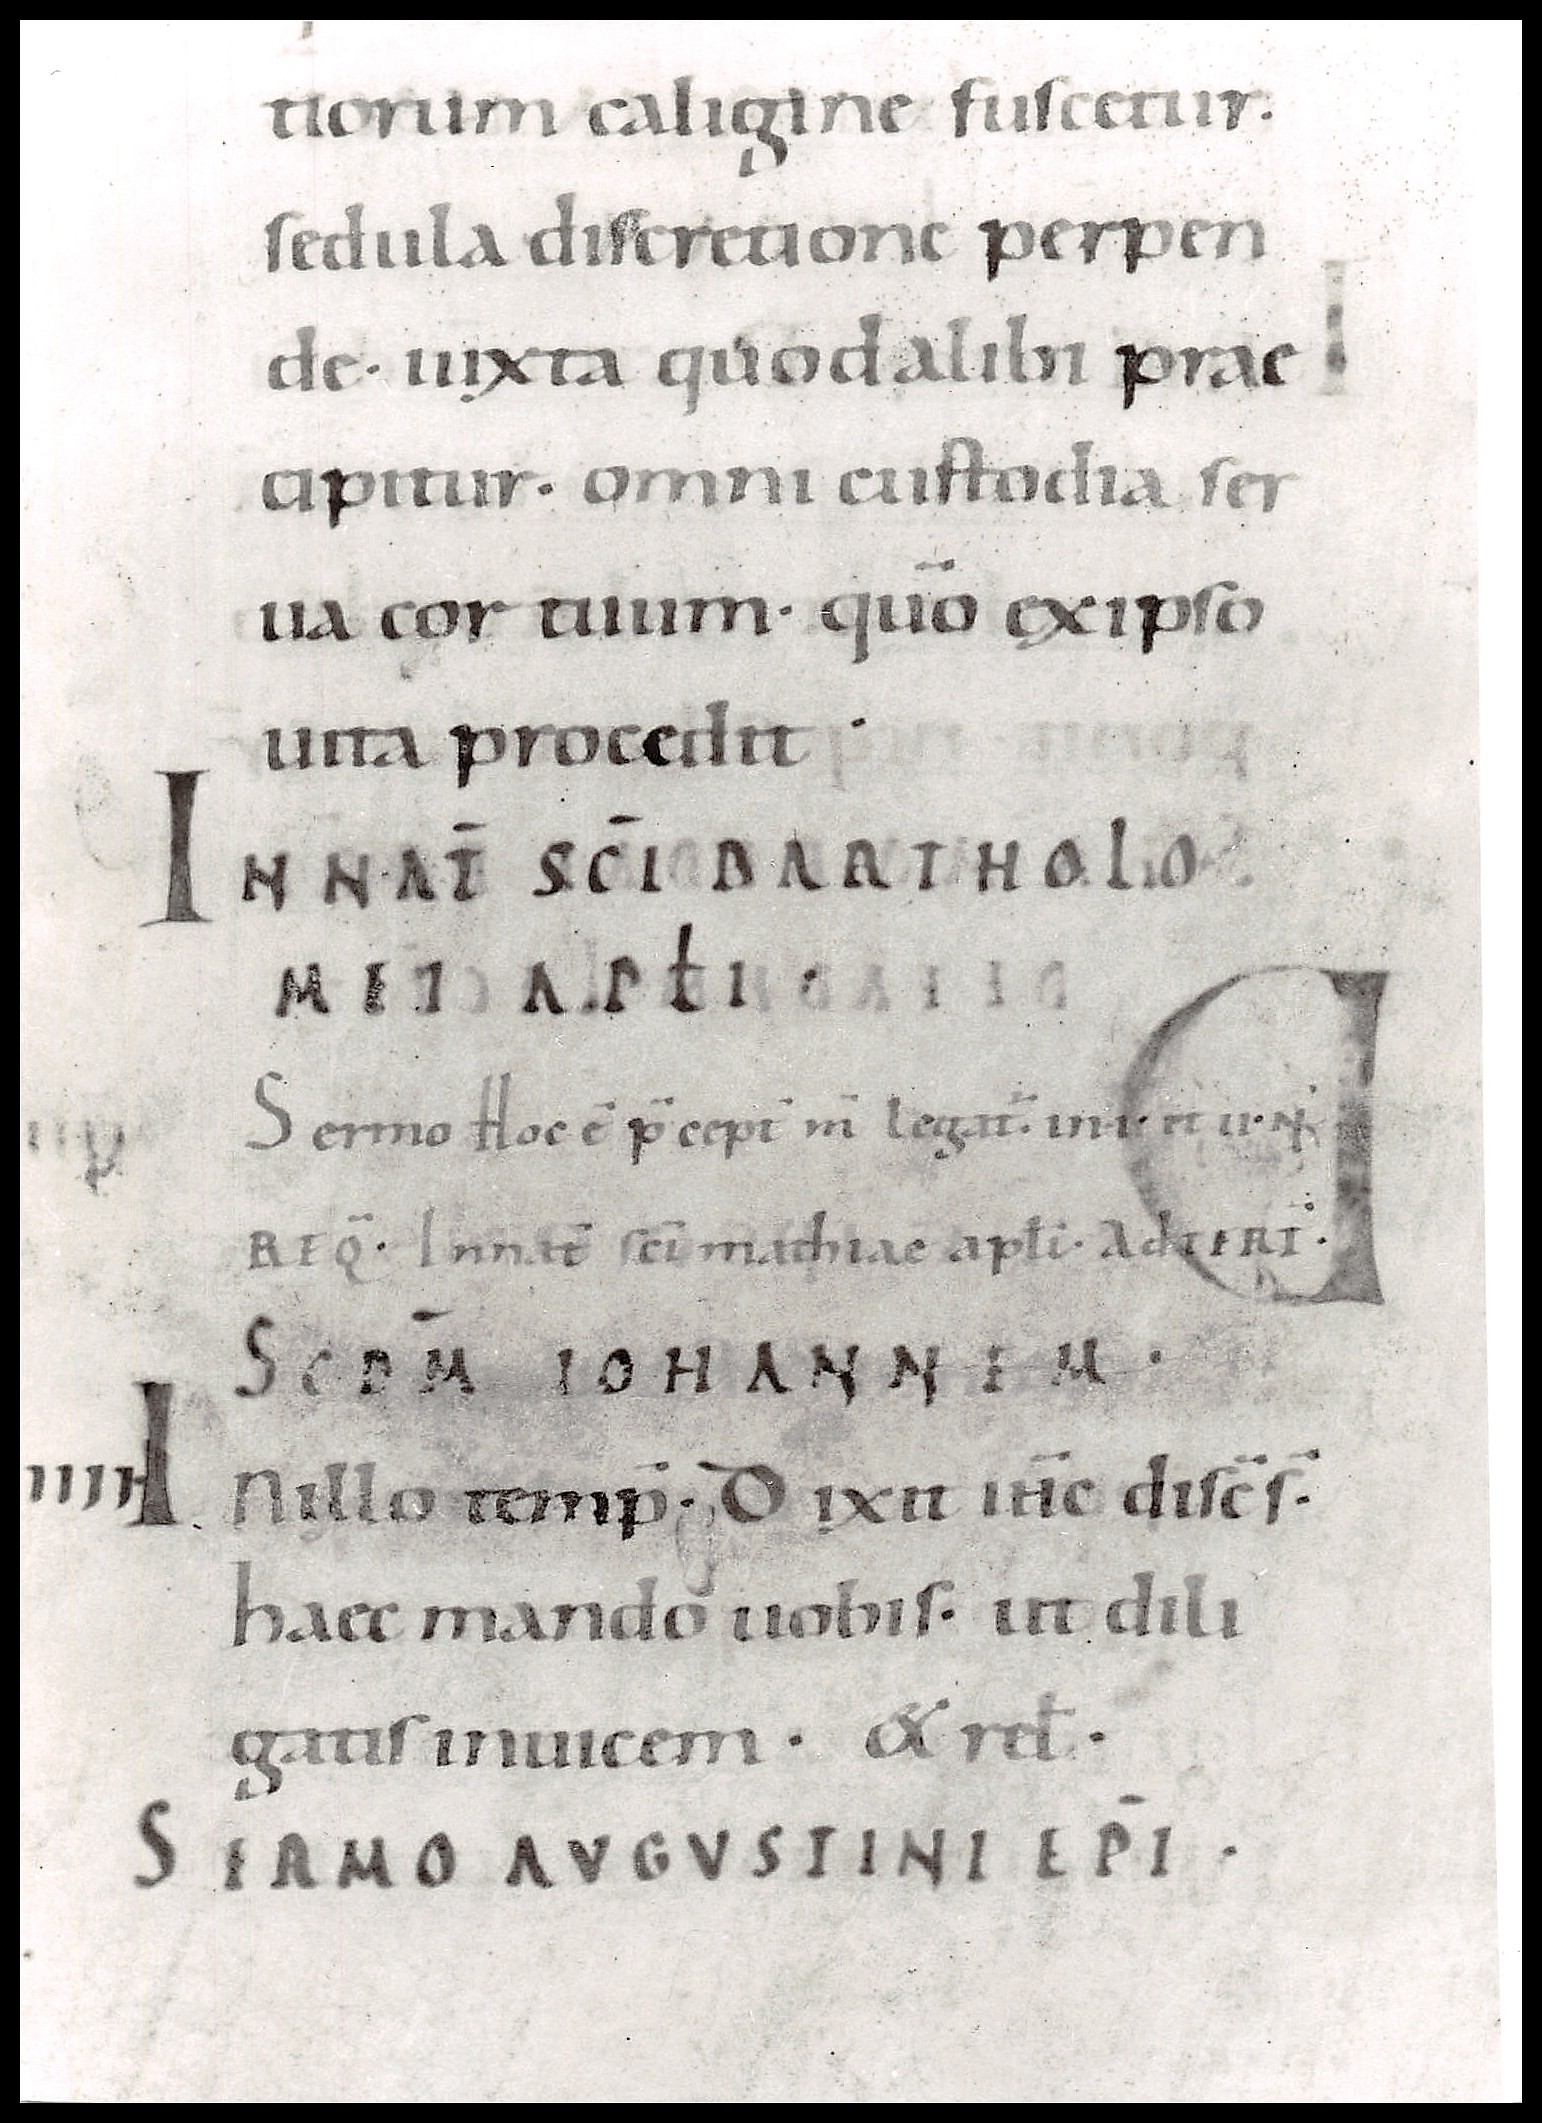 tiorum caligine fuscetur.
sedula discretione perpen
de· iuxta quod alibi prae
cipitur· omni custodia ser
ua cor tuum· quō ex ipso
uita procedit·
IN NAT̄ SC̄I BARTHOLO
MEI APŁI·
Sermo Hoc ē p̄cept̄ m̄ legat̄· in·i· et ii· N̄
REQ̄· In nat̄ sc̄i mathiae apłi· Ad TERT̄·
SCDM̄ IOHANNEM·
IIII In illo temp̄· Dixit ih̄c disc̄s̄·
haec mando uobis· ut dili
gatis inuicem· & reł·
SERMO AUGUSTINI EP̄I·